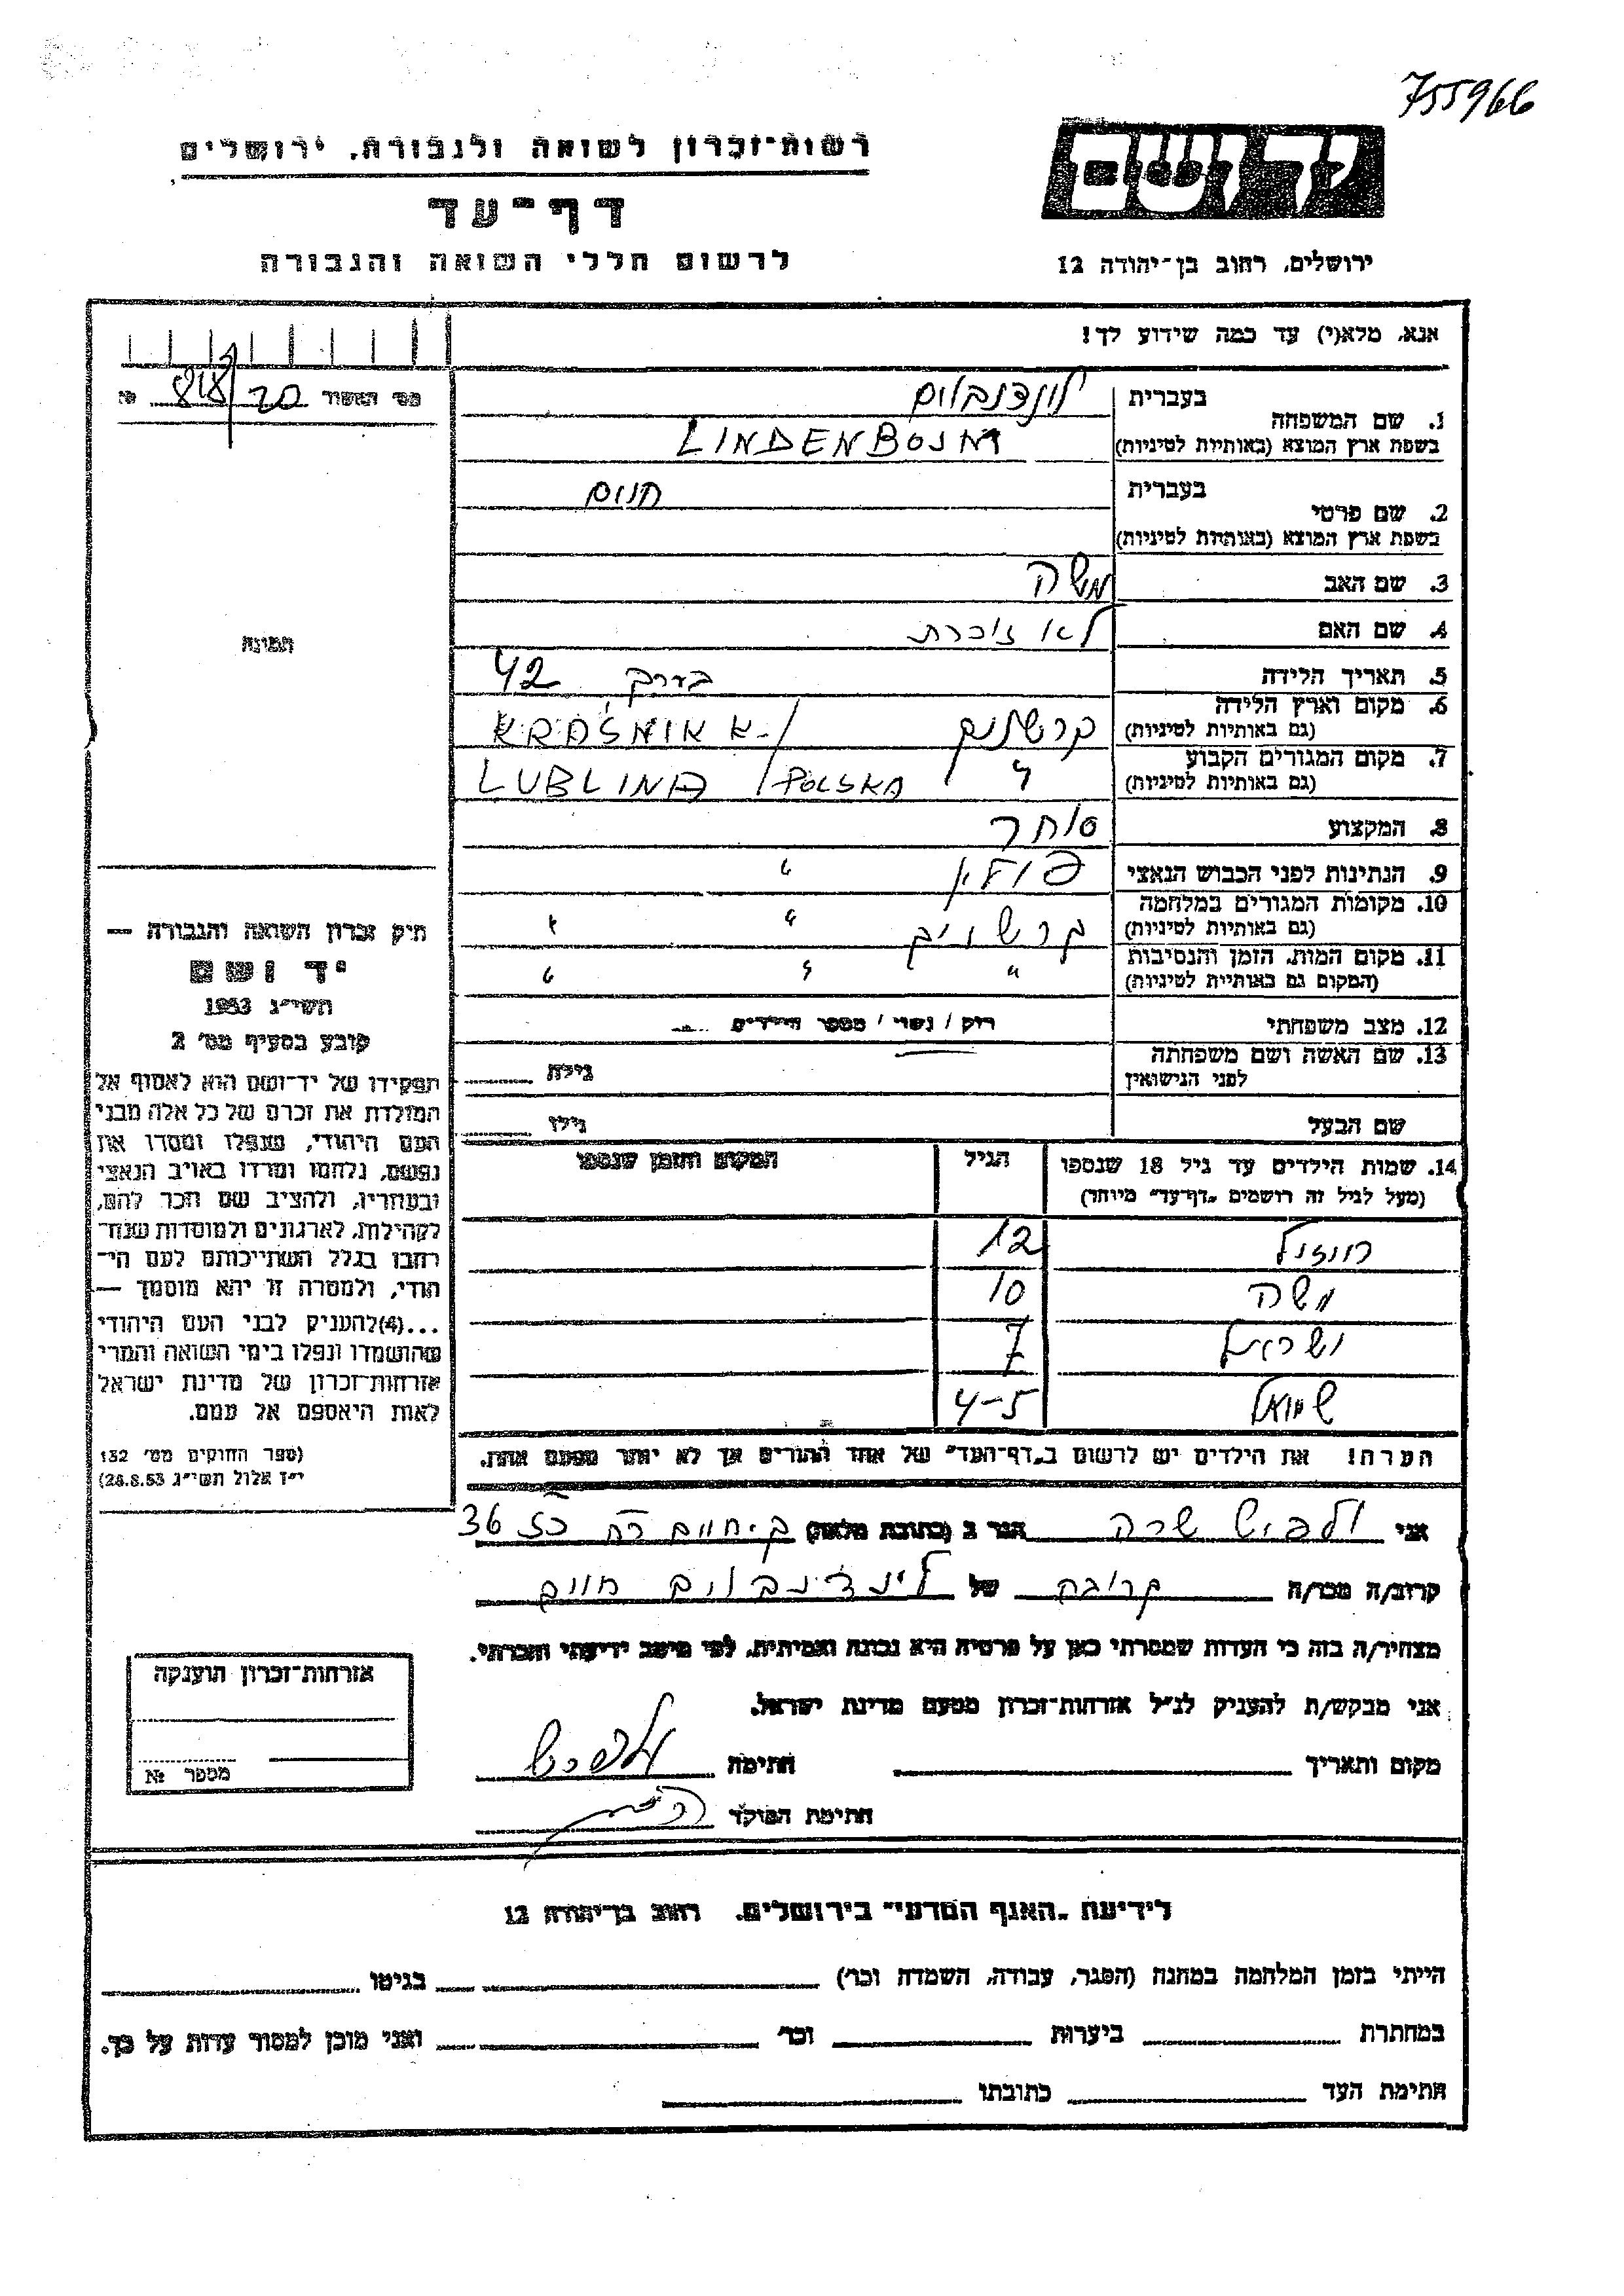 755966
רשות־זכרון לשואה ולגבורה, ירושלים
דף־עד
לרשום חללי השואה והגבורה
יד ושם
ירושלים, רחוב בן־יהודה 12
אנא, מלא(י) עד כמה שידוע לך!
1. שם המשפחה
בעברית
לינדנבוים
בשפת ארץ המוצא (באותיות לטיניות)
LINDENBOJM
2. שם פרטי
בעברית
חיים
בשפת ארץ המוצא (באותיות לטיניות)
3. שם האב משה
4. שם האם לא זוכרת
5. תאריך הלידה בערך 42
6. מקום וארץ הלידה
(גם באותיות לטיניות)
קרשניק KRAŚNIK K-/
7. מקום המגורים הקבוע
(גם באותיות לטיניות)
" LUBLINA / POLSKA
8. המקצוע סוחר
9. הנתינות לפני הכבוש הנאצי פולין "
10. מקומות המגורים במלחמה
(גם באותיות לטיניות)
קרשניק " "
11. מקום המות, הזמן והנסיבות
(המקום גם באותיות לטיניות)
" " "
12. מצב משפחתי רוק / נשוי / מספר הילדים
13. שם האשה ושם משפחתה
לפני הנישואין
גילה
שם הבעל גילו
14. שמות הילדים עד גיל 18 שנספו הגיל המקום והזמן שנספו
(מעל לגיל זה רושמים "דף־עד" מיוחד)
12
משה 10
ישראל 7
שמואל 4-5
הערה! את הילדים יש לרשום ב"דף־העד" של אחד ההורים אך לא יותר מפעם אחת.
תמונה
חוק זכרון השואה והגבורה —
יד ושם
תשי״ג 1953
קובע בסעיף מס׳ 2
תפקידו של יד־ושם הוא לאסוף אל
המולדת את זכרם של כל אלה מבני
העם היהודי, שנפלו ומסרו את
נפשם, נלחמו ומרדו באויב הנאצי
ובעוזריו, ולהציב שם וזכר להם,
לקהילות, לארגונים ולמוסדות שנח־
רבו בגלל השתייכותם לעם הי־
הודי, ולמטרה זו יהא מוסמך —
...(4)להעניק לבני העם היהודי
שהושמדו ונפלו בימי השואה והמרי
אזרחות־זכרון של מדינת ישראל
לאות היאספם אל עמם.
(ספר החוקים מס׳ 132
י״ז אלול תשי״ג 28.8.53)
אני שרה הגר ב (כתובת מלאה) 36
קרוב/ה מכר/ה קרובה של לינדנבוים חיים
מצהיר/ה בזה כי העדות שמסרתי כאן על פרטיה היא נכונה ואמיתית, לפי מיטב ידיעתי והכרתי.
אני מבקש/ת להעניק לנ״ל אזרחות־זכרון מטעם מדינת ישראל.
מקום ותאריך חתימה
חתימת הפוקד
אזרחות־זכרון הוענקה
מספר №
לידיעת "האגף המדעי" בירושלים, רחוב בן־יהודה 12
הייתי בזמן המלחמה במחנה (הסגר, עבודה, השמדה וכו׳) בגיטו
במחתרת ביערות וכו׳ ואני מוכן למסור עדות על כך.
חתימת העד כתובתו